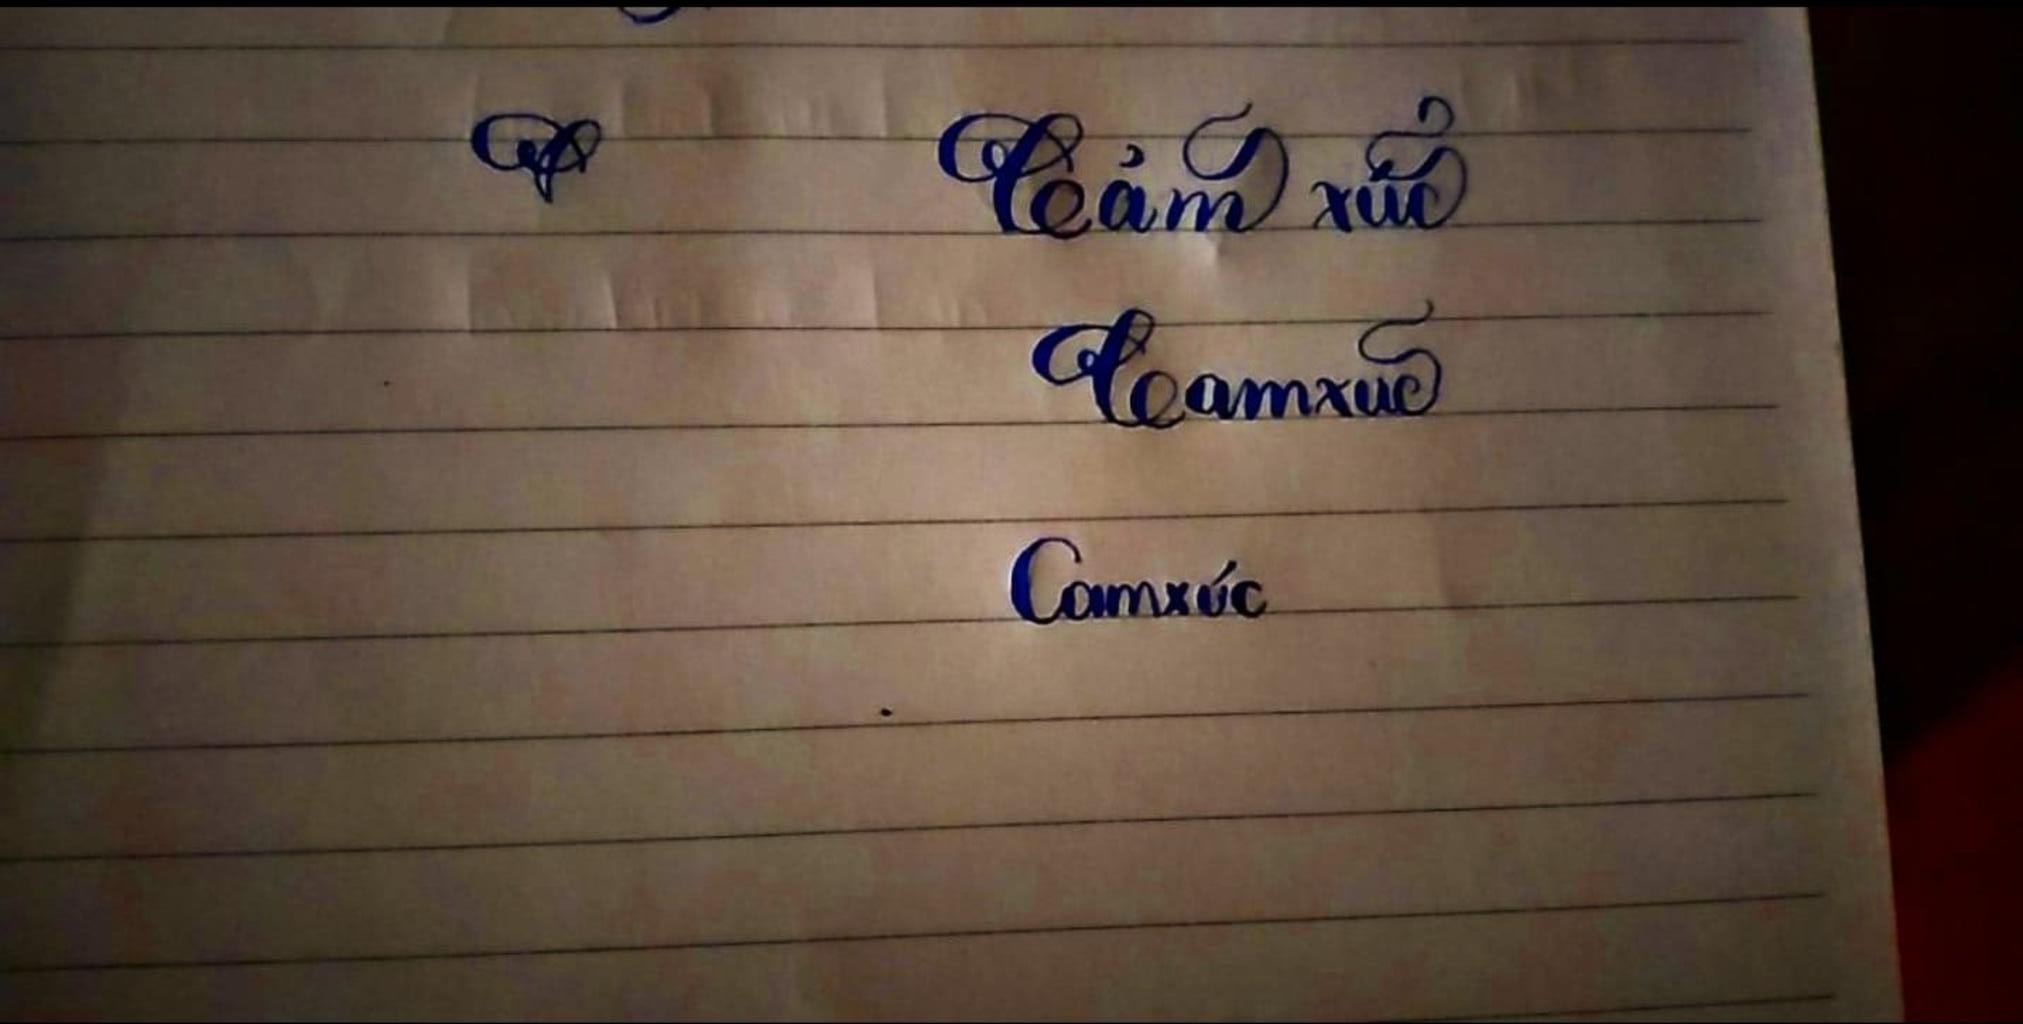 Cảm xúc
Camxuc
Camxúc